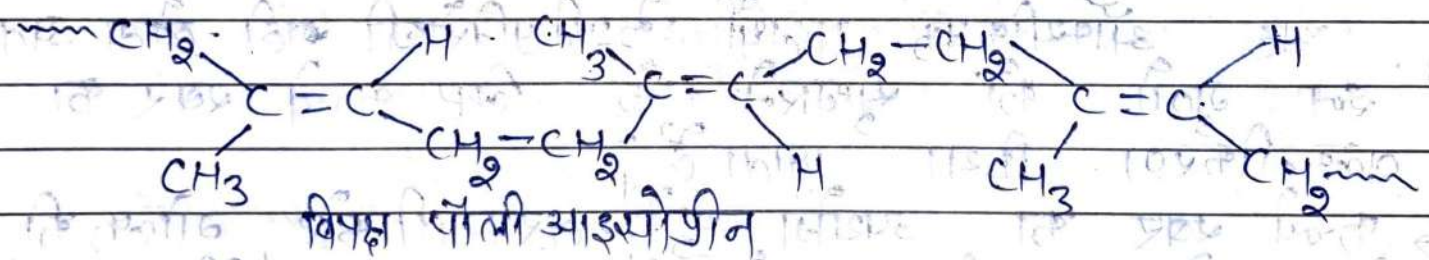 CH2 H CH3 CH2-CH2 H
C=C C=C C=C
CH3 CH2-CH2 H CH3 CH2
विपक्ष पॉली आइसोप्रीन